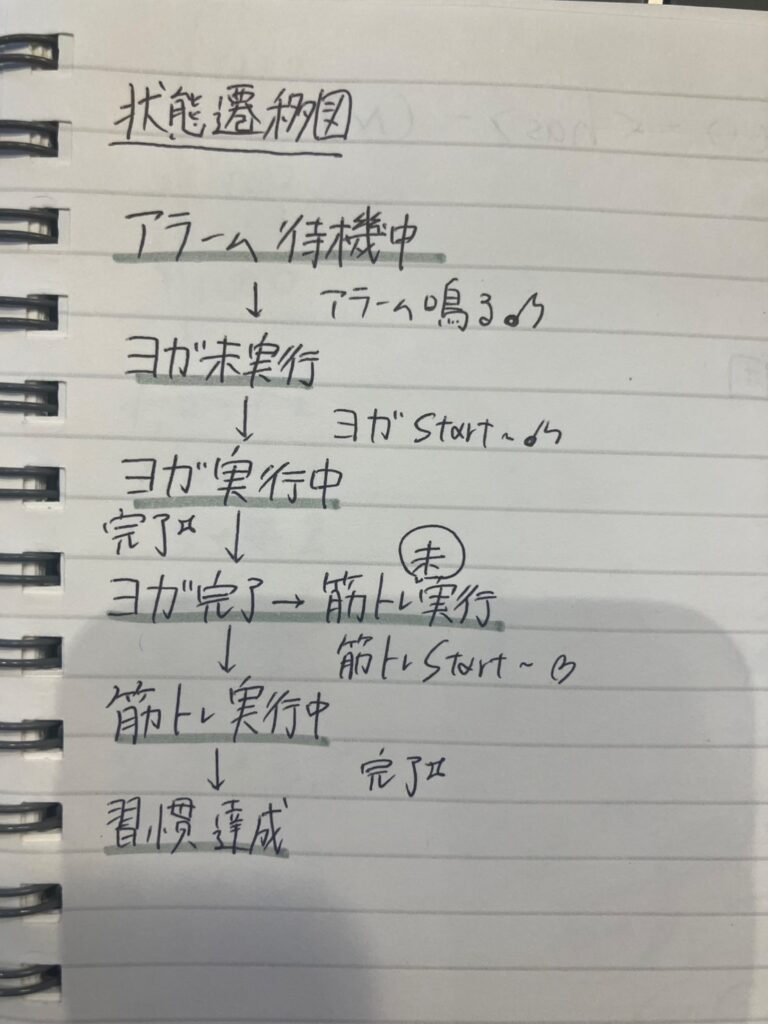 状態遷移図
アラーム待機中
↓ アラーム鳴る♪
ヨガ未実行
↓ ヨガStart~♪
ヨガ実行中
完了¤ ↓
未
ヨガ完了→筋トレ実行
↓ 筋トレStart~
筋トレ実行中
↓ 完了¤
習慣達成